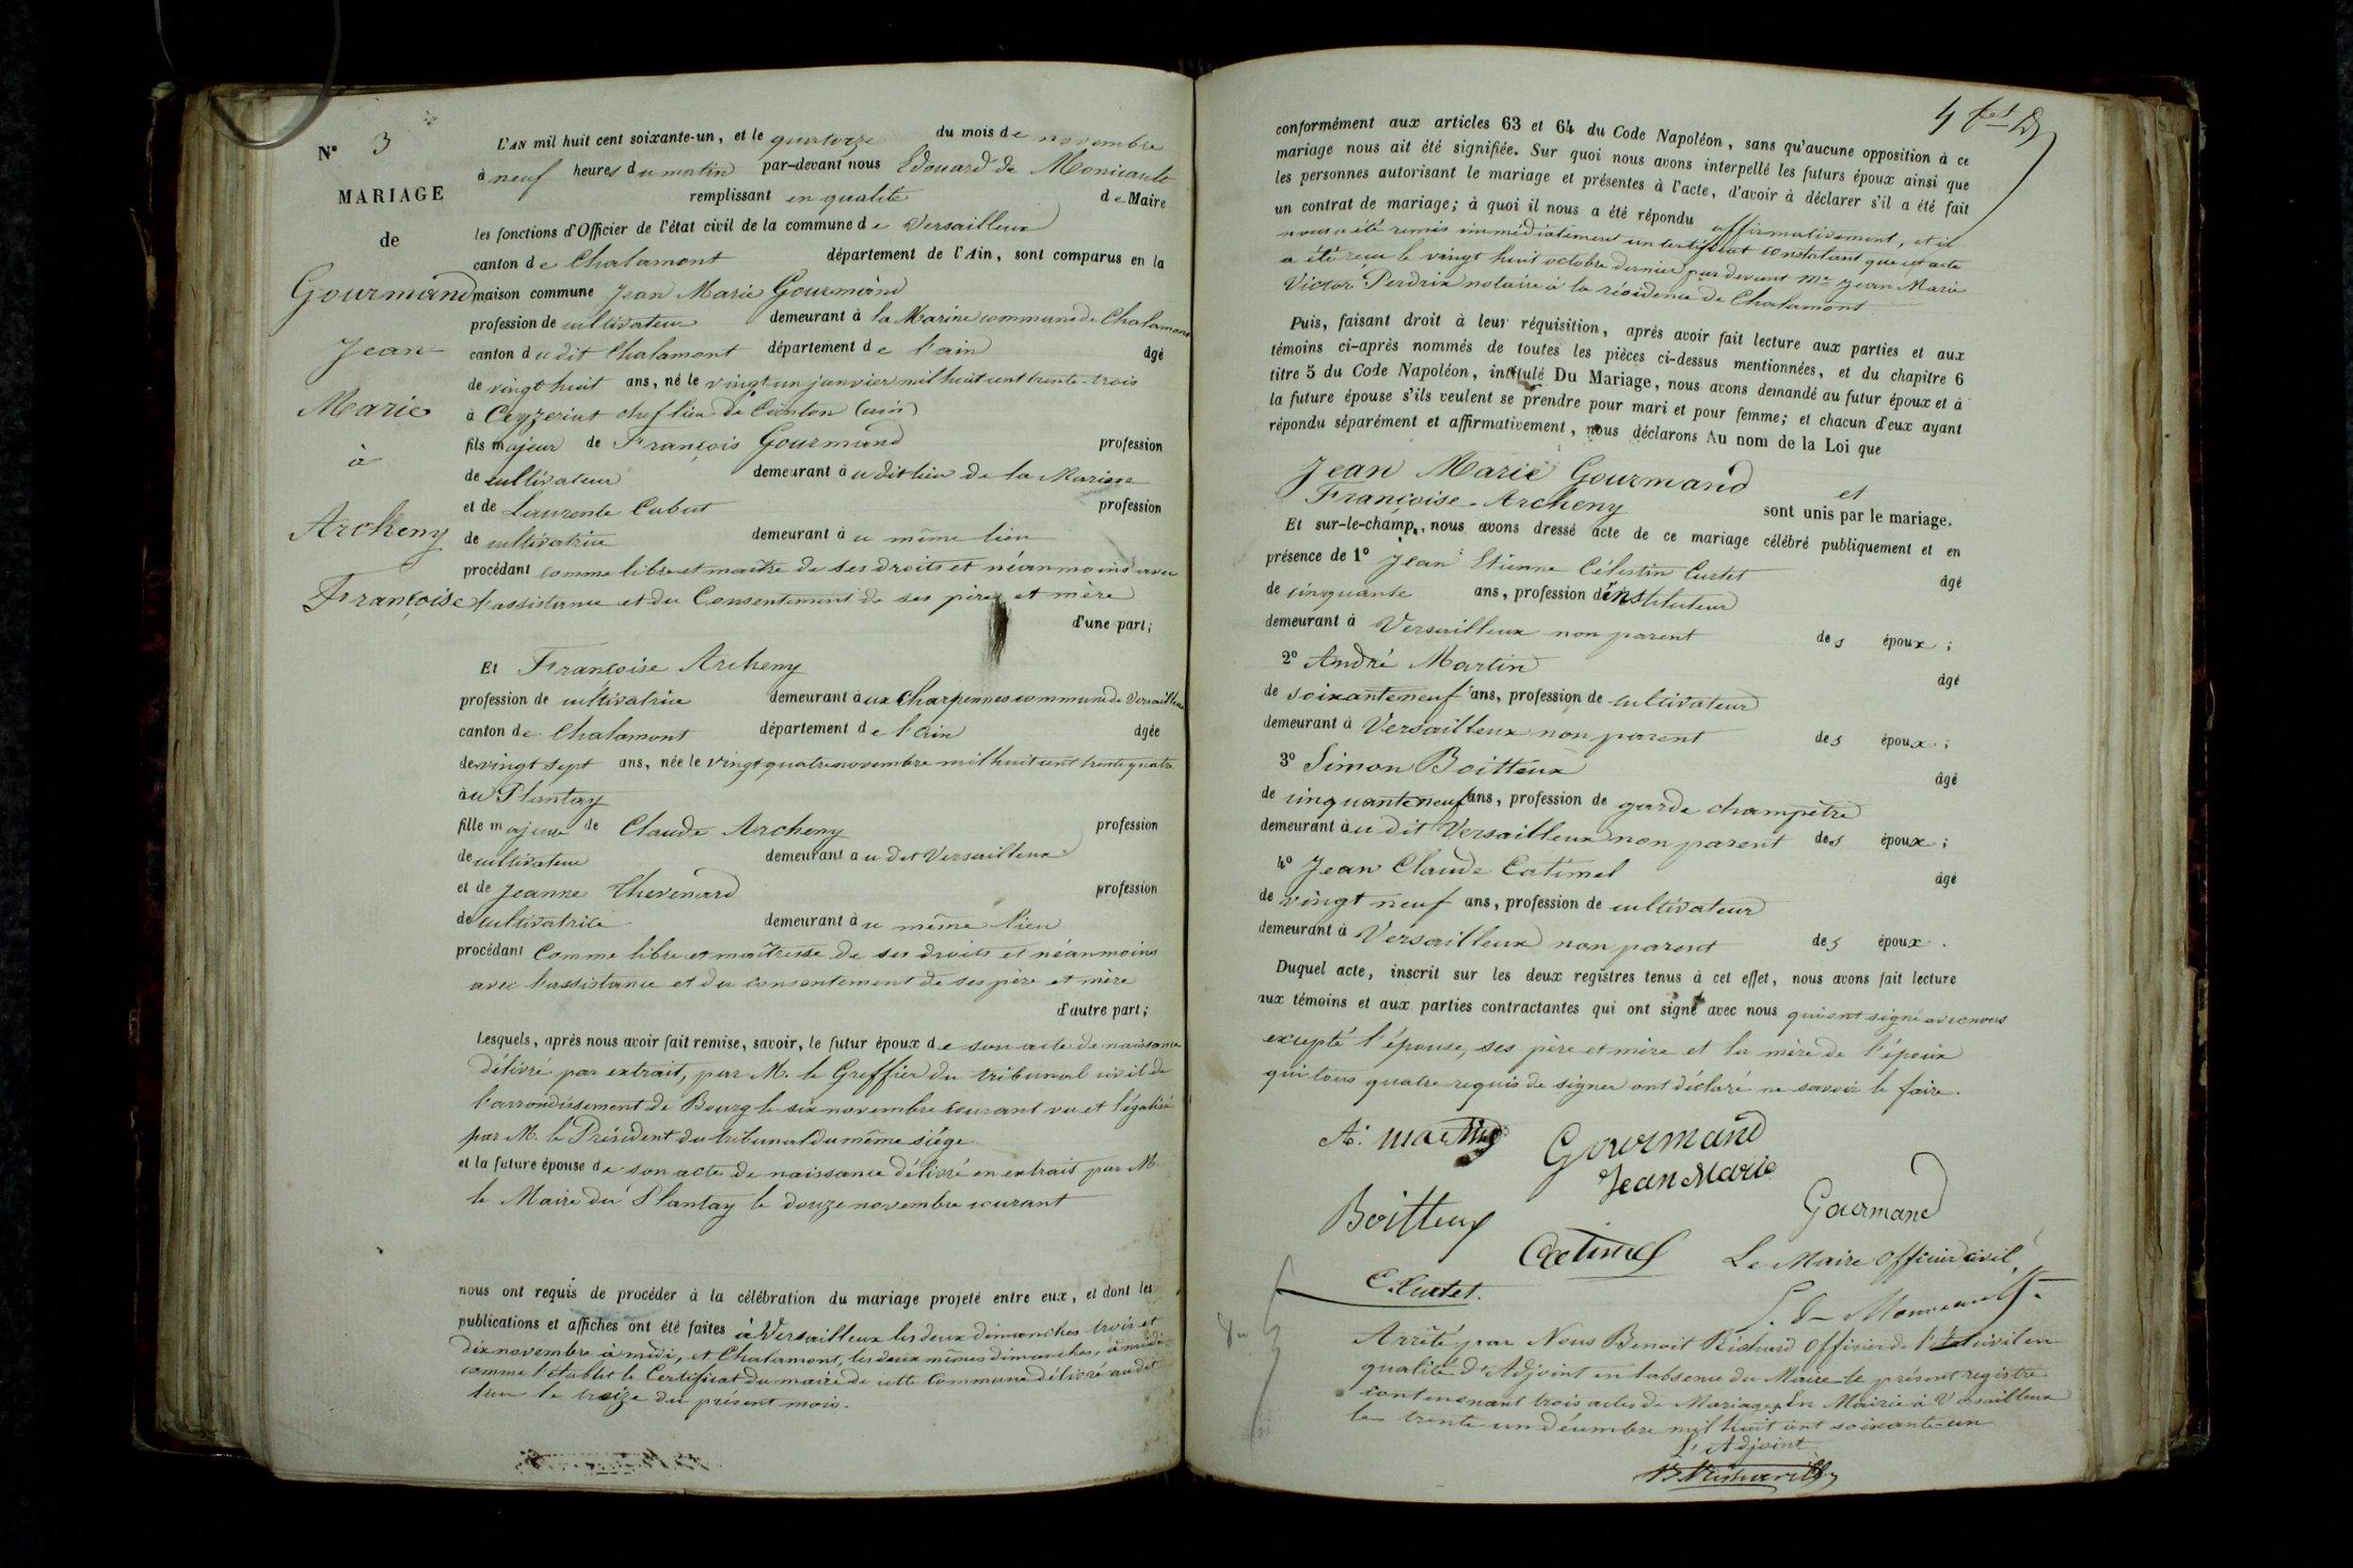 N° 3
MARIAGE
de
Gourmand
Jean
Marie
à
Archeny
Françoise
L'AN mil huit cent soixante-un, et le quatorze du mois de novembre
à neuf heures du matin par-devant nous Edouard de Monicault
remplissant en qualité de Maire
les fonctions d'Officier de l'état civil de la commune de Versailleux
canton de Chalamont département de l'Ain, sont comparus en la
maison commune Jean Marie Gourmand
profession de cultivateur demeurant à la Marine commune de Chalamont
canton du dit Chalamont département de l'ain âgé
de vingt huit ans, né le vingt un janvier mil huit cent trente-trois
à Ceyzeriat chef lieu de Canton (ain)
fils majeur de François Gourmand profession
de cultivateur demeurant à u dit lieu de la Marine
et de Laurente Cubut profession
de cultivatrice demeurant à u même lieu
procédant comme libre et maître de ses droits et néanmoins avec
l'assistance et du Consentement de ses père et mère
d'une part;
Et Françoise Archeny
profession de cultivatrice demeurant à ux Charpennes commune de Versailleux
canton de Chalamont département de l'Ain âgée
de vingt sept ans, née le vingt quatre novembre mil huit cent trente quatre
à u Plantay
fille majeure de Claude Archeny profession
de cultivateur demeurant à u dit Versailleux
et de Jeanne Thevenard profession
de cultivatrice demeurant à u même lieu
procédant Comme libre et maîtresse de ses droits et néanmoins
avec l'assistance et du consentement de ses père et mère
d'autre part;
Lesquels, après nous avoir fait remise, savoir, le futur époux de son acte de naissance
délivré par extrait, par M. le Greffier du tribunal civil de
l'arrondissement de Bourg le six novembre courant vu et légalisé
par M. le Président du tribunal du même siège
et la future épouse de son acte de naissance délivré en extrait par M.
le Maire du Plantay le douze novembre courant
nous ont requis de procéder à la célébration du mariage projeté entre eux, et dont les
publications et affiches ont été faites à Versailleux les deux dimanches trois et
dix novembre à midi, et Chalamont, les deux mêmes dimanches, à midi
comme l'établit le Certificat du maire de cette Commune délivré au dit
lieu le treize du présent mois.
conformément aux articles 63 et 64 du Code Napoléon, sans qu'aucune opposition à ce
mariage nous ait été signifiée. Sur quoi nous avons interpellé les futurs époux ainsi que
les personnes autorisant le mariage et présentes à l'acte, d'avoir à déclarer s'il a été fait
un contrat de mariage; à quoi il nous a été répondu affirmativement, et il
nous a été remis immédiatement un certificat constatant que cet acte
a été reçu le vingt huit octobre dernier par devant Me Jean Marie
Victor Perdrix notaire à la résidence de Chalamont
Puis, faisant droit à leur réquisition, après avoir fait lecture aux parties et aux
témoins ci-après nommés de toutes les pièces ci-dessus mentionnées, et du chapitre 6
titre 5 du Code Napoléon, intitulé Du Mariage, nous avons demandé au futur époux et à
la future épouse s'ils veulent se prendre pour mari et pour femme; et chacun d'eux ayant
répondu séparément et affirmativement, nous déclarons Au nom de la Loi que
Jean Marie Gourmand et
Françoise Archeny sont unis par le mariage.
Et sur-le-champ, nous avons dressé acte de ce mariage célébré publiquement et en
présence de 1° Jean Etienne Célestin Curtet âgé
de cinquante ans, profession d'instituteur
demeurant à Versailleux non parent des époux;
2° André Martin âgé
de soixante neuf ans, profession de cultivateur
demeurant à Versailleux non parent des époux;
3° Simon Boitteux âgé
de cinquante neuf ans, profession de garde champêtre
demeurant à u dit Versailleux non parent des époux;
4° Jean Claude Catimel âgé
de vingt neuf ans, profession de cultivateur
demeurant à Versailleux non parent des époux.
Duquel acte, inscrit sur les deux registres tenus à cet effet, nous avons fait lecture
aux témoins et aux parties contractantes qui ont signé avec nous qui ont signé avec nous
excepté l'épouse, ses père et mère et la mère de l'époux
qui tous quatre requis de signer ont déclaré ne savoir le faire.
A. Martin
Gourmand
Jean Marie
Boitteux
Gourmand
Catimel
Le Maire Officier civil
C. Curtet.
Arrêté par Nous Benoit Richard Officier de l'état civil en
qualité d'Adjoint en l'absence du Maire le présent registre
contenenant trois actes de Mariages. En Mairie à Versailleux
le trente un décembre mil huit cent soixante-un
L'Adjoint